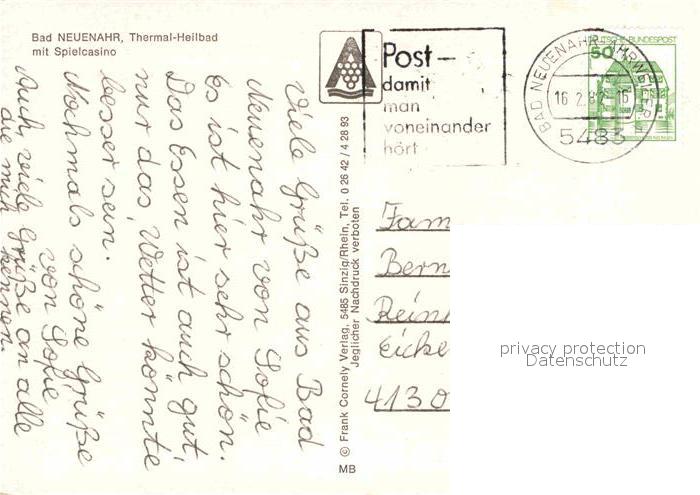 Bad NEUENAHR, Thermal-Heilbad
mit Spielcasino
Viele Grüße aus Bad
Neuenahr von Sofie
Es ist hier sehr schön.
Das Essen ist auch gut,
nur das Wetter könnte
besser sein.
Nochmals schöne Grüße
von Sofie
Auch viele Grüße an alle
die mich kennen.
© Frank Cornely Verlag, 5485 Sinzig/Rhein, Tel. 0 26 42 / 4 28 93
Jeglicher Nachdruck verboten
MB
Post–
damit
man
voneinander
hört
BAD NEUENAHR-AHRWEILER
16.2.82-16
5483
DEUTSCHE BUNDESPOST
50
Fam
Bern
Rein
Eicke
4130
privacy protection
Datenschutz